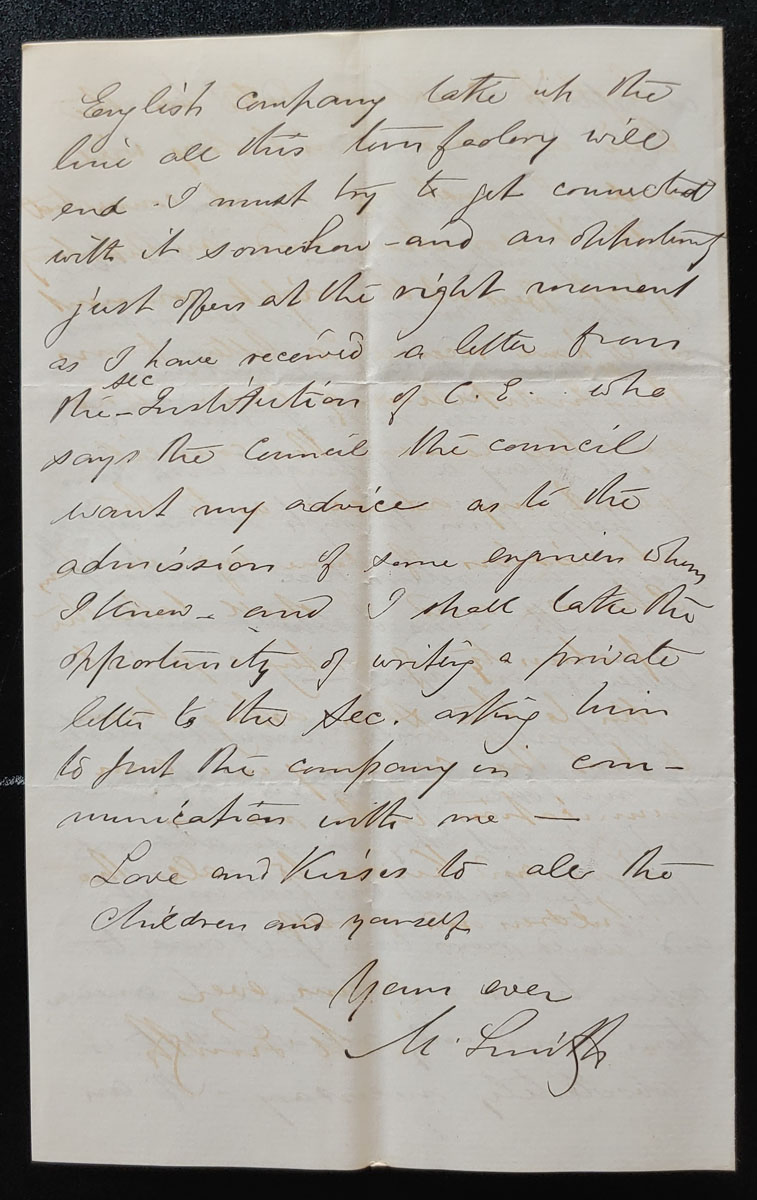 English company take up the
line all this tom foolery will
end. I must try to get connected
with it somehow - and an opportunity
just offers at the right moment
as I have received a letter from
sec
the - Institution of C. E. . who
says the Council the council
want my advice as to the
admission of some engineer whom
I knew - and I shall take the
opportunity of writing a private
letter to the Sec. asking him
to put the company in com-
munication with me —
Love and Kisses to all the
Children and yourself
Yours ever
M. Smith